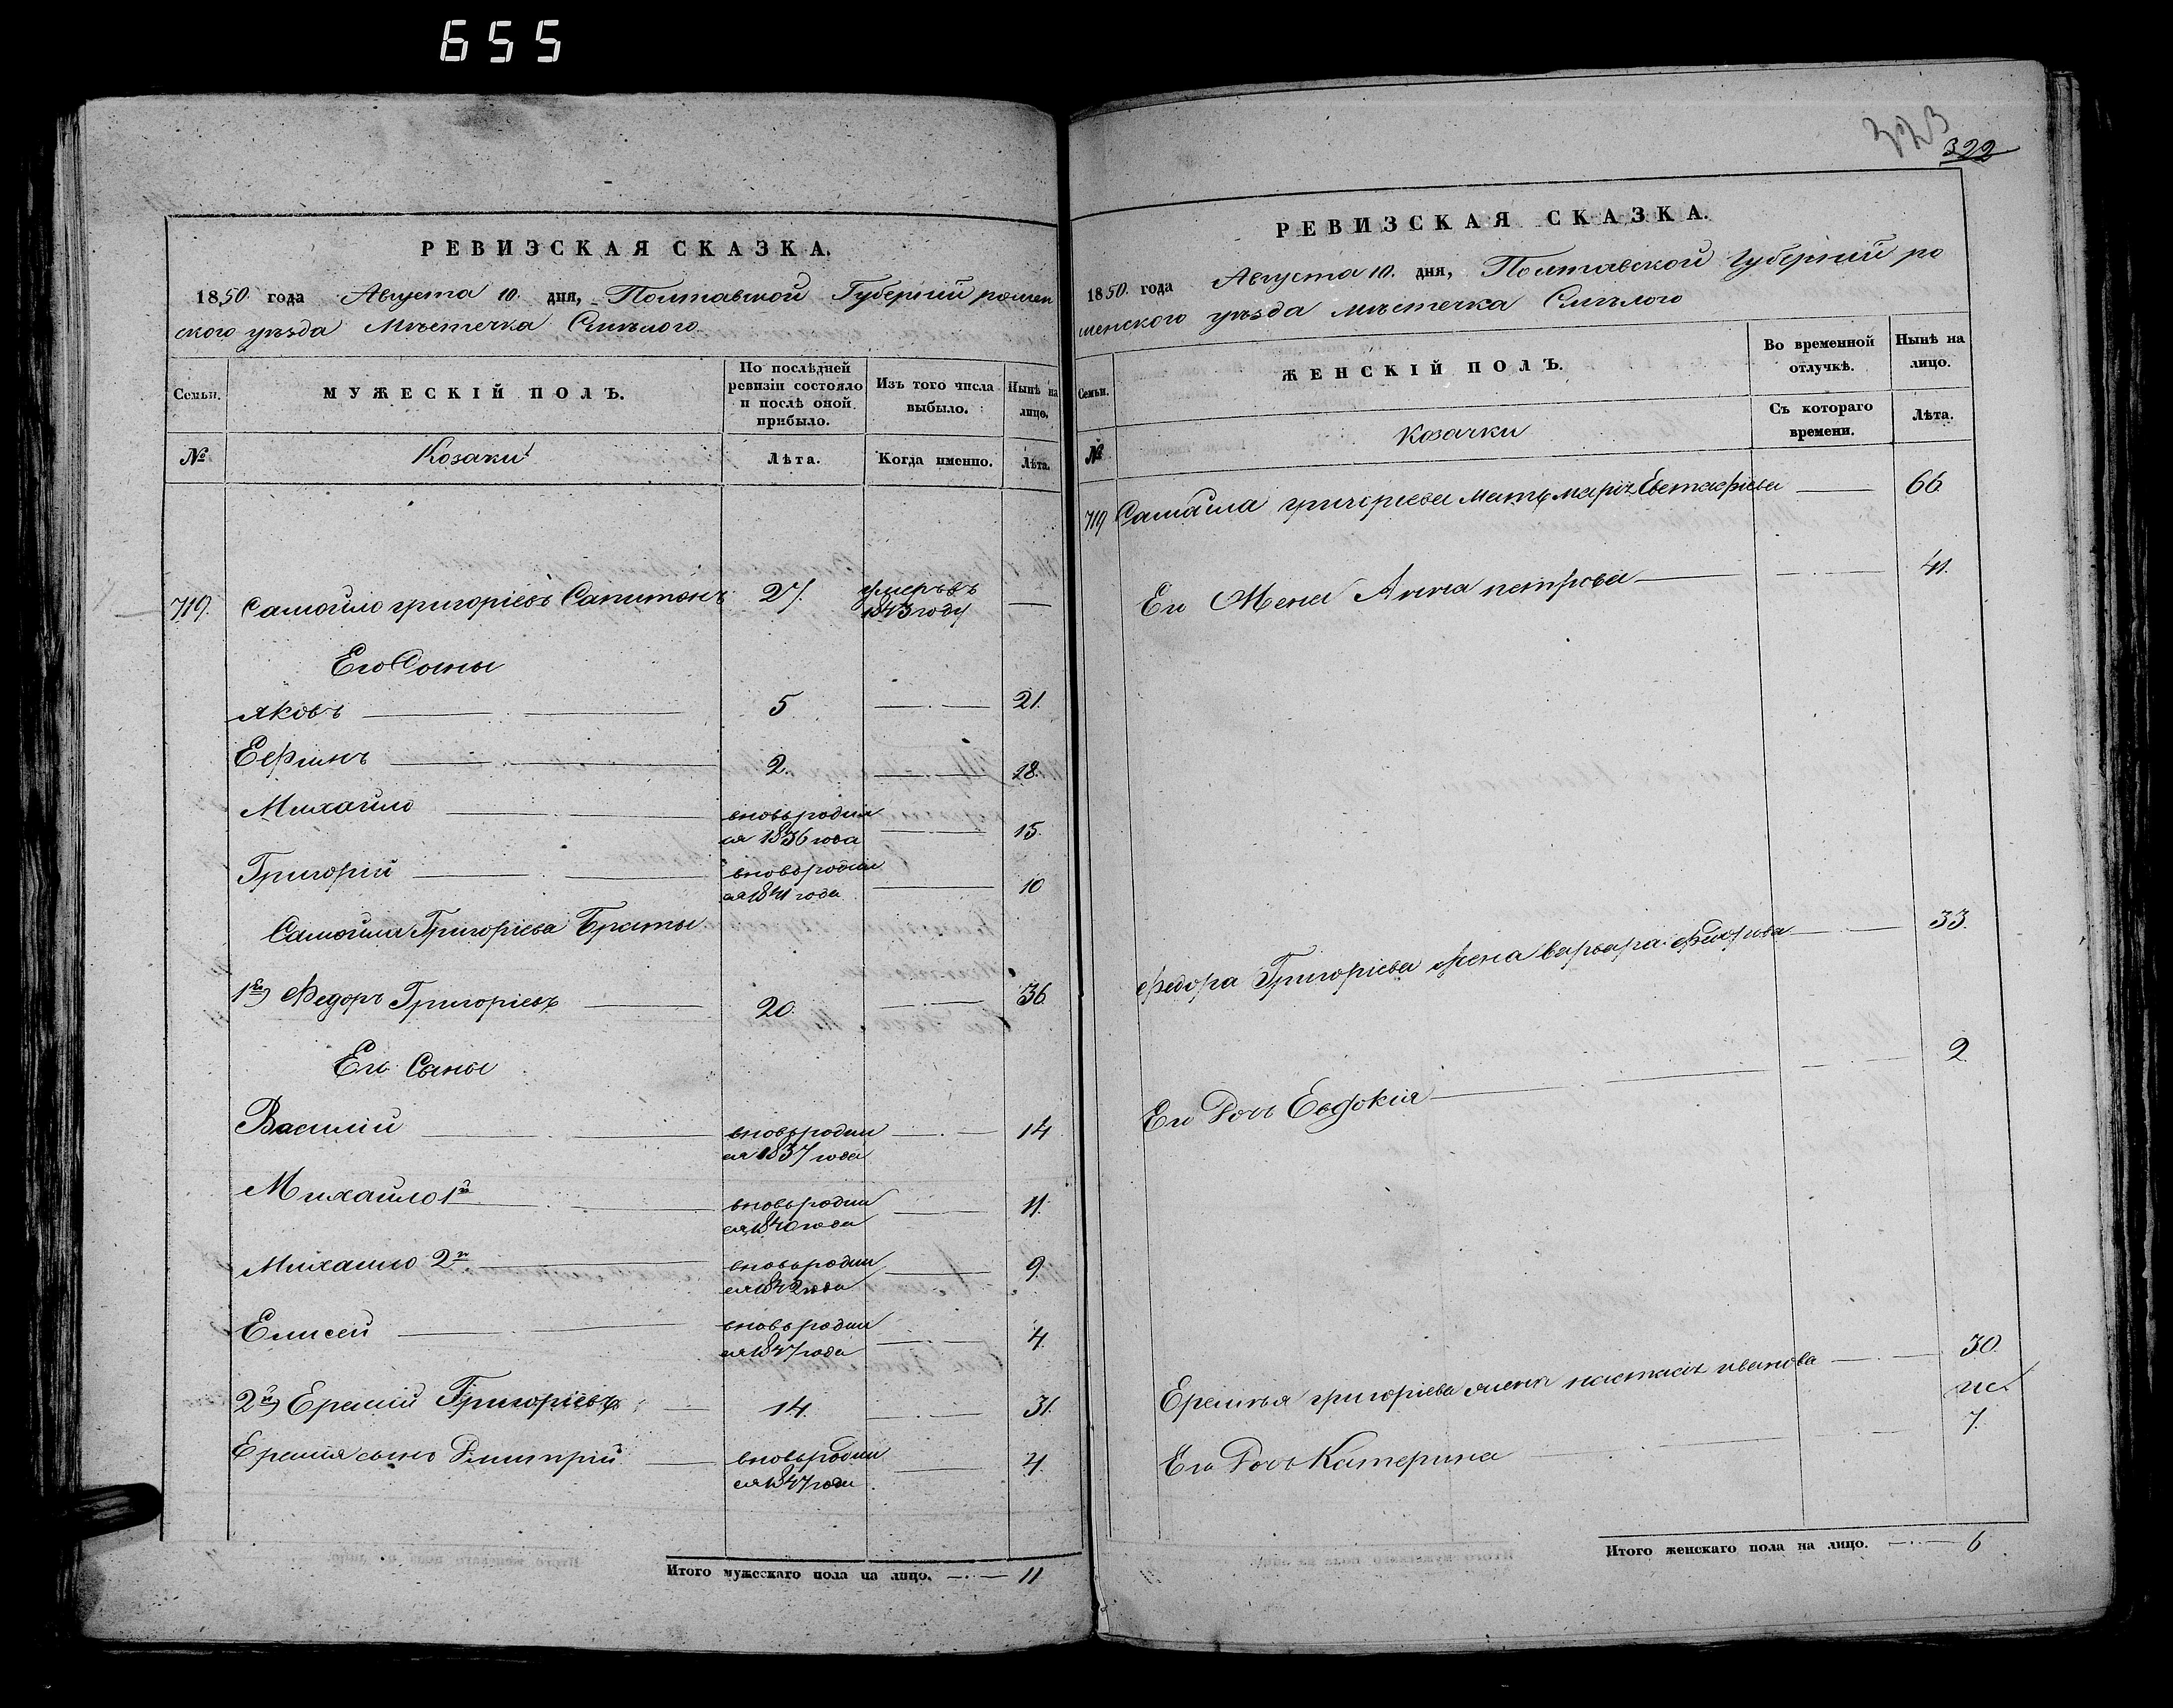 655
РЕВИЗСКАЯ СКАЗКА.
1850. года Августа 10. дня, Полтавской Губерній ромен
ского уѣзда Мѣстечка Смѣлого
Семьи.
МУЖЕСКІЙ ПОЛЪ.
По послѣдней ревизіи состояло и послѣ оной прибыло.
Изъ того числа выбыло.
Нынѣ на лицо.
№
Козаки
Лѣта.
Когда именно.
Лѣта.
719. Самойло григоріевъ Сапитонъ 27. умеръ въ 1843 году —
Его Сыны
Яковъ 5 21.
Ефимъ 2. 18.
Михайло вновь родил ся 1836 года 15.
Григорій вновь родил ся 1841 года 10
Самойла Григоріева Браты
1й) Федоръ Григоріевъ 20. 36
Его Сыны
Василій вновь родил ся 1837 года 14
Михайло 1й вновь родил ся 1840 года 11.
Михайло 2й вновь родил ся 1842 года 9.
Елисей вновь родил ся 1847 года 4.
2й) Еремій Григоріевъ 14. 31.
Еремія сынъ Дмитрій вновь родил ся 1847 года 4.
Итого мужескаго пола на лицо. 11
323
322
РЕВИЗСКАЯ СКАЗКА.
1850. года Августа 10. дня, Полтавской Губерній ро
менского уѣзда мѣстечка Смѣлого
Семьи.
ЖЕНСКІЙ ПОЛЪ.
Во временной отлучкѣ.
Нынѣ на лицо.
№
Козачки
Съ котораго времени.
Лѣта.
719 Самойла григоріева Мать марія Евстафіева 66
Его Жена Анна петрова 41.
Федора Григоріева Жена варвара Федорова 33.
Его Дочь Евдокія 2.
Еремѣя григоріева жена настасія иванова 30.
Его Дочь Катерина 7.
Итого женскаго пола на лицо. 6